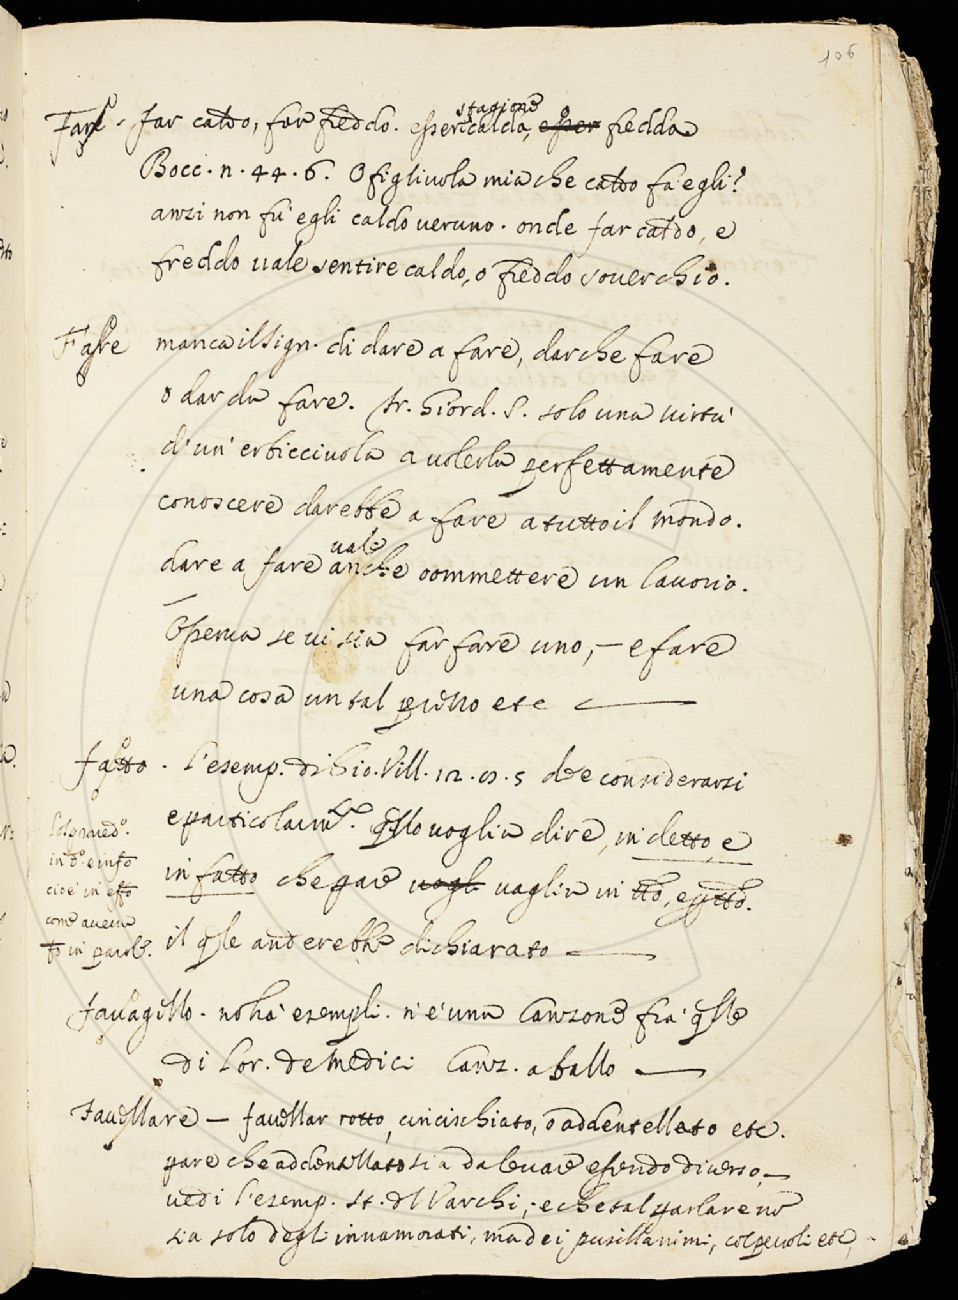 106
Fare . far caldo, far freddo. esser stagione calda, esser fredda
Bocc. n. 44. 6. O figlivola mia che caldo fa egli?
anzi non fu' egli caldo veruno. onde far caldo, e
freddo vale sentire caldo, o freddo soverchio.
Fare manca il Sign. di dare a fare, dar che fare
o dar da fare. fr. Giord. S. solo una virtu'
d'un' erbiccivola a volerla perfettamente
conoscere darebbe a fare a tutto il mondo.
dare a fare vale anche commettere un lavorio.
Osserva se vi sia far fare uno, – e fare
una cosa un tal
etc
fatto . l'esemp. di Gio. Vill. 12. 5 dee considerarsi
e particolarmte. qllo voglia dire, in detto, e
in fatto che pare vogl vaglia in
il qle anderebbe dichiarato
in do. e in fto
cioè in effto
come aveva
tto in parole.
favagello . no ha' esempli. n'è una Canzone fra' qlle
di Lor. de Medici Canz. a ballo
Favellare – favellar rotto, cincischiato, o addentellato etc.
pare che addentellato si a da levare essendo diverso, –
vedi l'esemp. st. dl Varchi, e che tal parlare nō
sia solo degl' innamorati, ma dei pusillanimi, colpevoli etc,